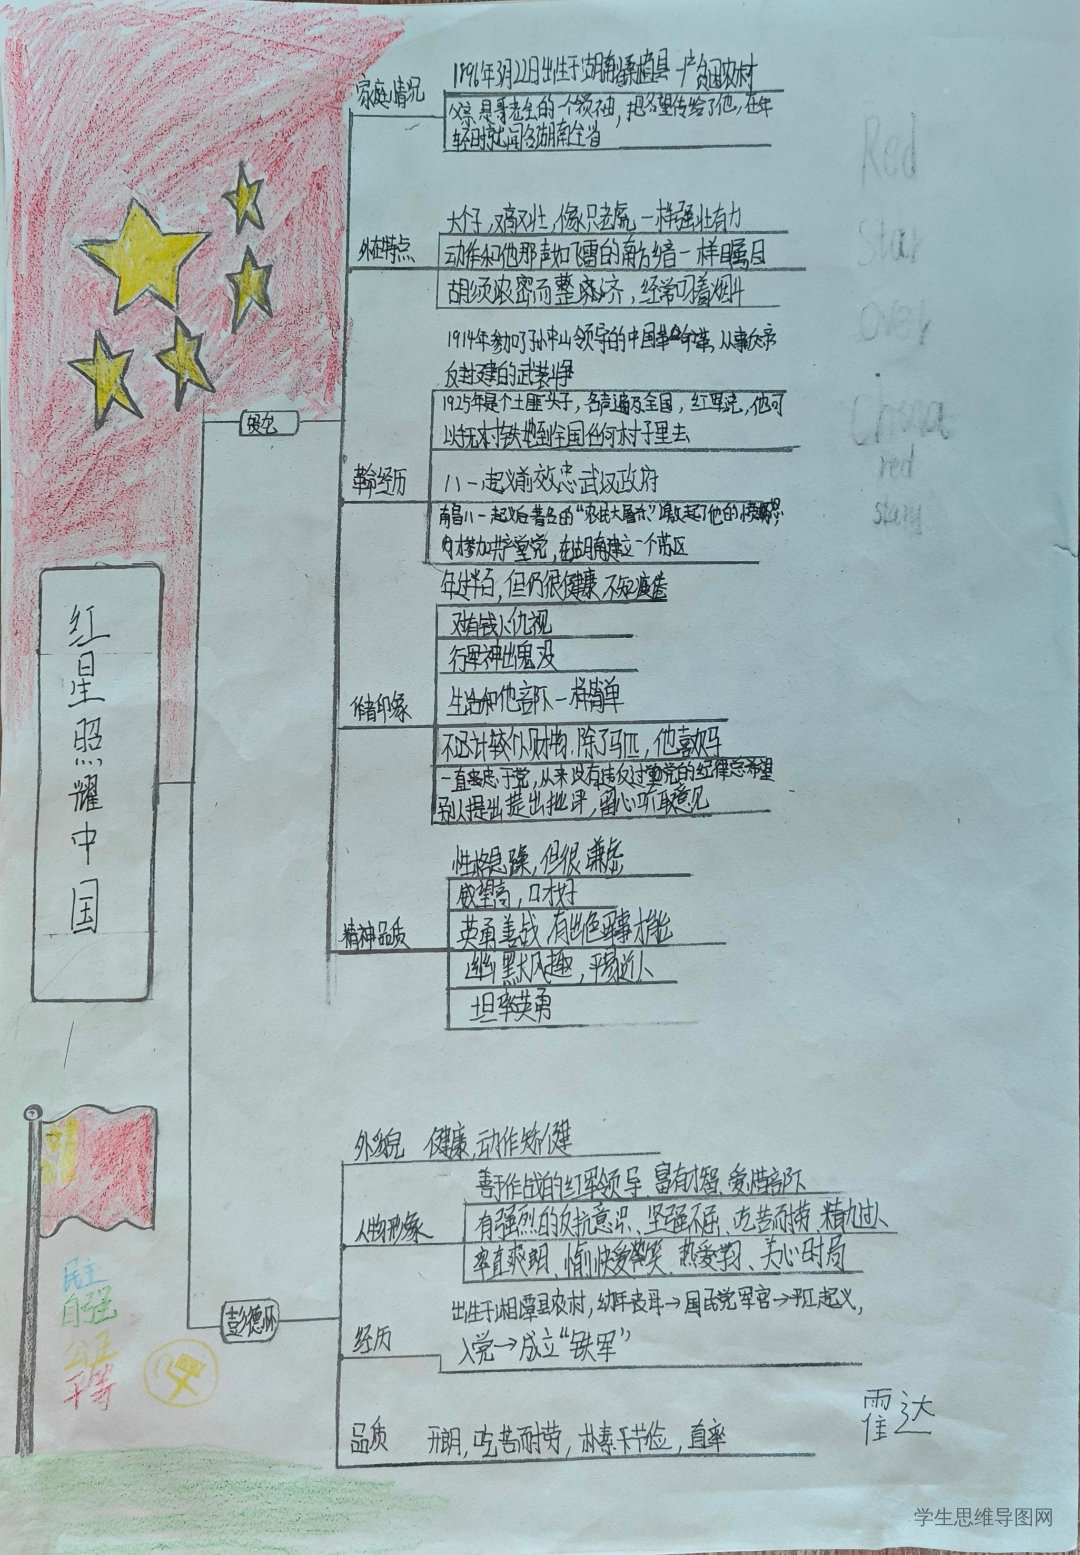 红星照耀中国
贺龙
家庭情况
1896年3月22日出生于湖南桑植县一户贫困农村
父亲是哥老会的一个领袖，把名望传给了他，在年
轻时就闻名湖南全省
外在特点
大个子，又高又壮，像只老虎一样强壮有力
动作和他那声如飞雷的南方编音一样瞩目
胡须浓密而整齐，经常叼着烟斗
革命经历
1914年参加了孙中山领导的中国革命革，从事反帝
反封建的武装斗争
1925年是个土匪头子，名声遍及全国，红军说，他可
以
到全国任何村子里去
八一起义前效忠武汉政府
南昌八一起义后著名的“农民大屠杀”激起了他的愤怒
才参加共产党，在湖南建立一个苏区
作者印象
年过半百，但仍很健康，不知疲倦
对有钱人仇视
行军神出鬼没
生活和他部队一样简单
不计较个人财物，除了马匹，他喜欢马
一直忠于党，从来没有违反过党的纪律总希望
别人提出提出批评，留心听取意见
精神品质
性格急躁，但很谦虚
威望高，口才好
英勇善战，有出色军事才能
幽默风趣，平易近人
坦率英勇
彭德怀
外貌 健康，动作矫健
人物形象
善于作战的红军领导、富有才智、爱惜部队
有强烈的反抗意识、坚强不屈、吃苦而耐劳 精力过人
率直爽朗、愉快爱笑、热爱学习、关心时局
经历
出生于湘潭县农村，幼年丧母→国民党军官→平江起义，
入党→成立“铁军”
品质 开朗，吃苦而耐劳，朴素节俭，直率
民主
自强
公正
平等
霍达
Red
Star
Over
China
red
学生思维导图网